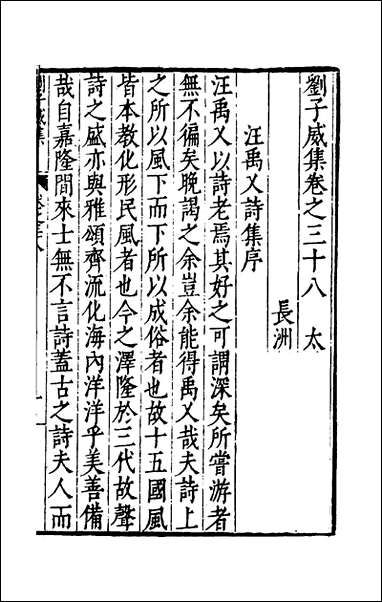 劉子威集卷之三十八 太
長洲
汪禹乂詩集序
汪禹乂以詩老焉其好之可謂深矣所嘗游者
無不徧矣晚謁之余豈余能得禹乂哉夫詩上
之所以風下而下所以成俗者也故十五國風
皆本教化形民風者也今之澤隆於三代故聲
詩之盛亦與雅頌齊流化海內洋洋乎美善備
哉自嘉隆間來士無不言詩蓋古之詩夫人而